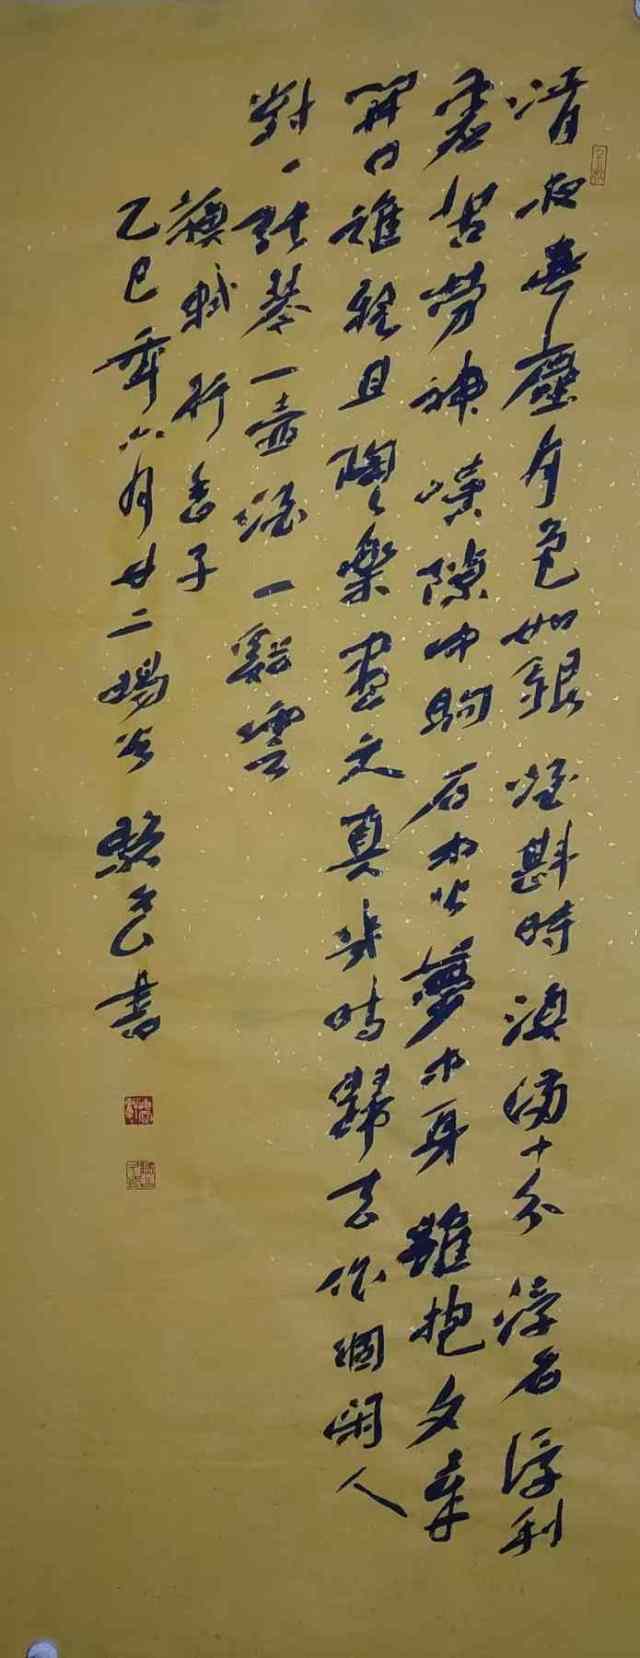 清夜無塵月色如銀酒斟時須滿十分浮名浮利
虛苦勞神嘆隙中駒石中火夢中身雖抱文章
開口誰親且陶々樂盡天真幾時歸去作個閑人
對一張琴一壺酒一谿雲
蘇軾行香子
乙巳年六月廿二 書